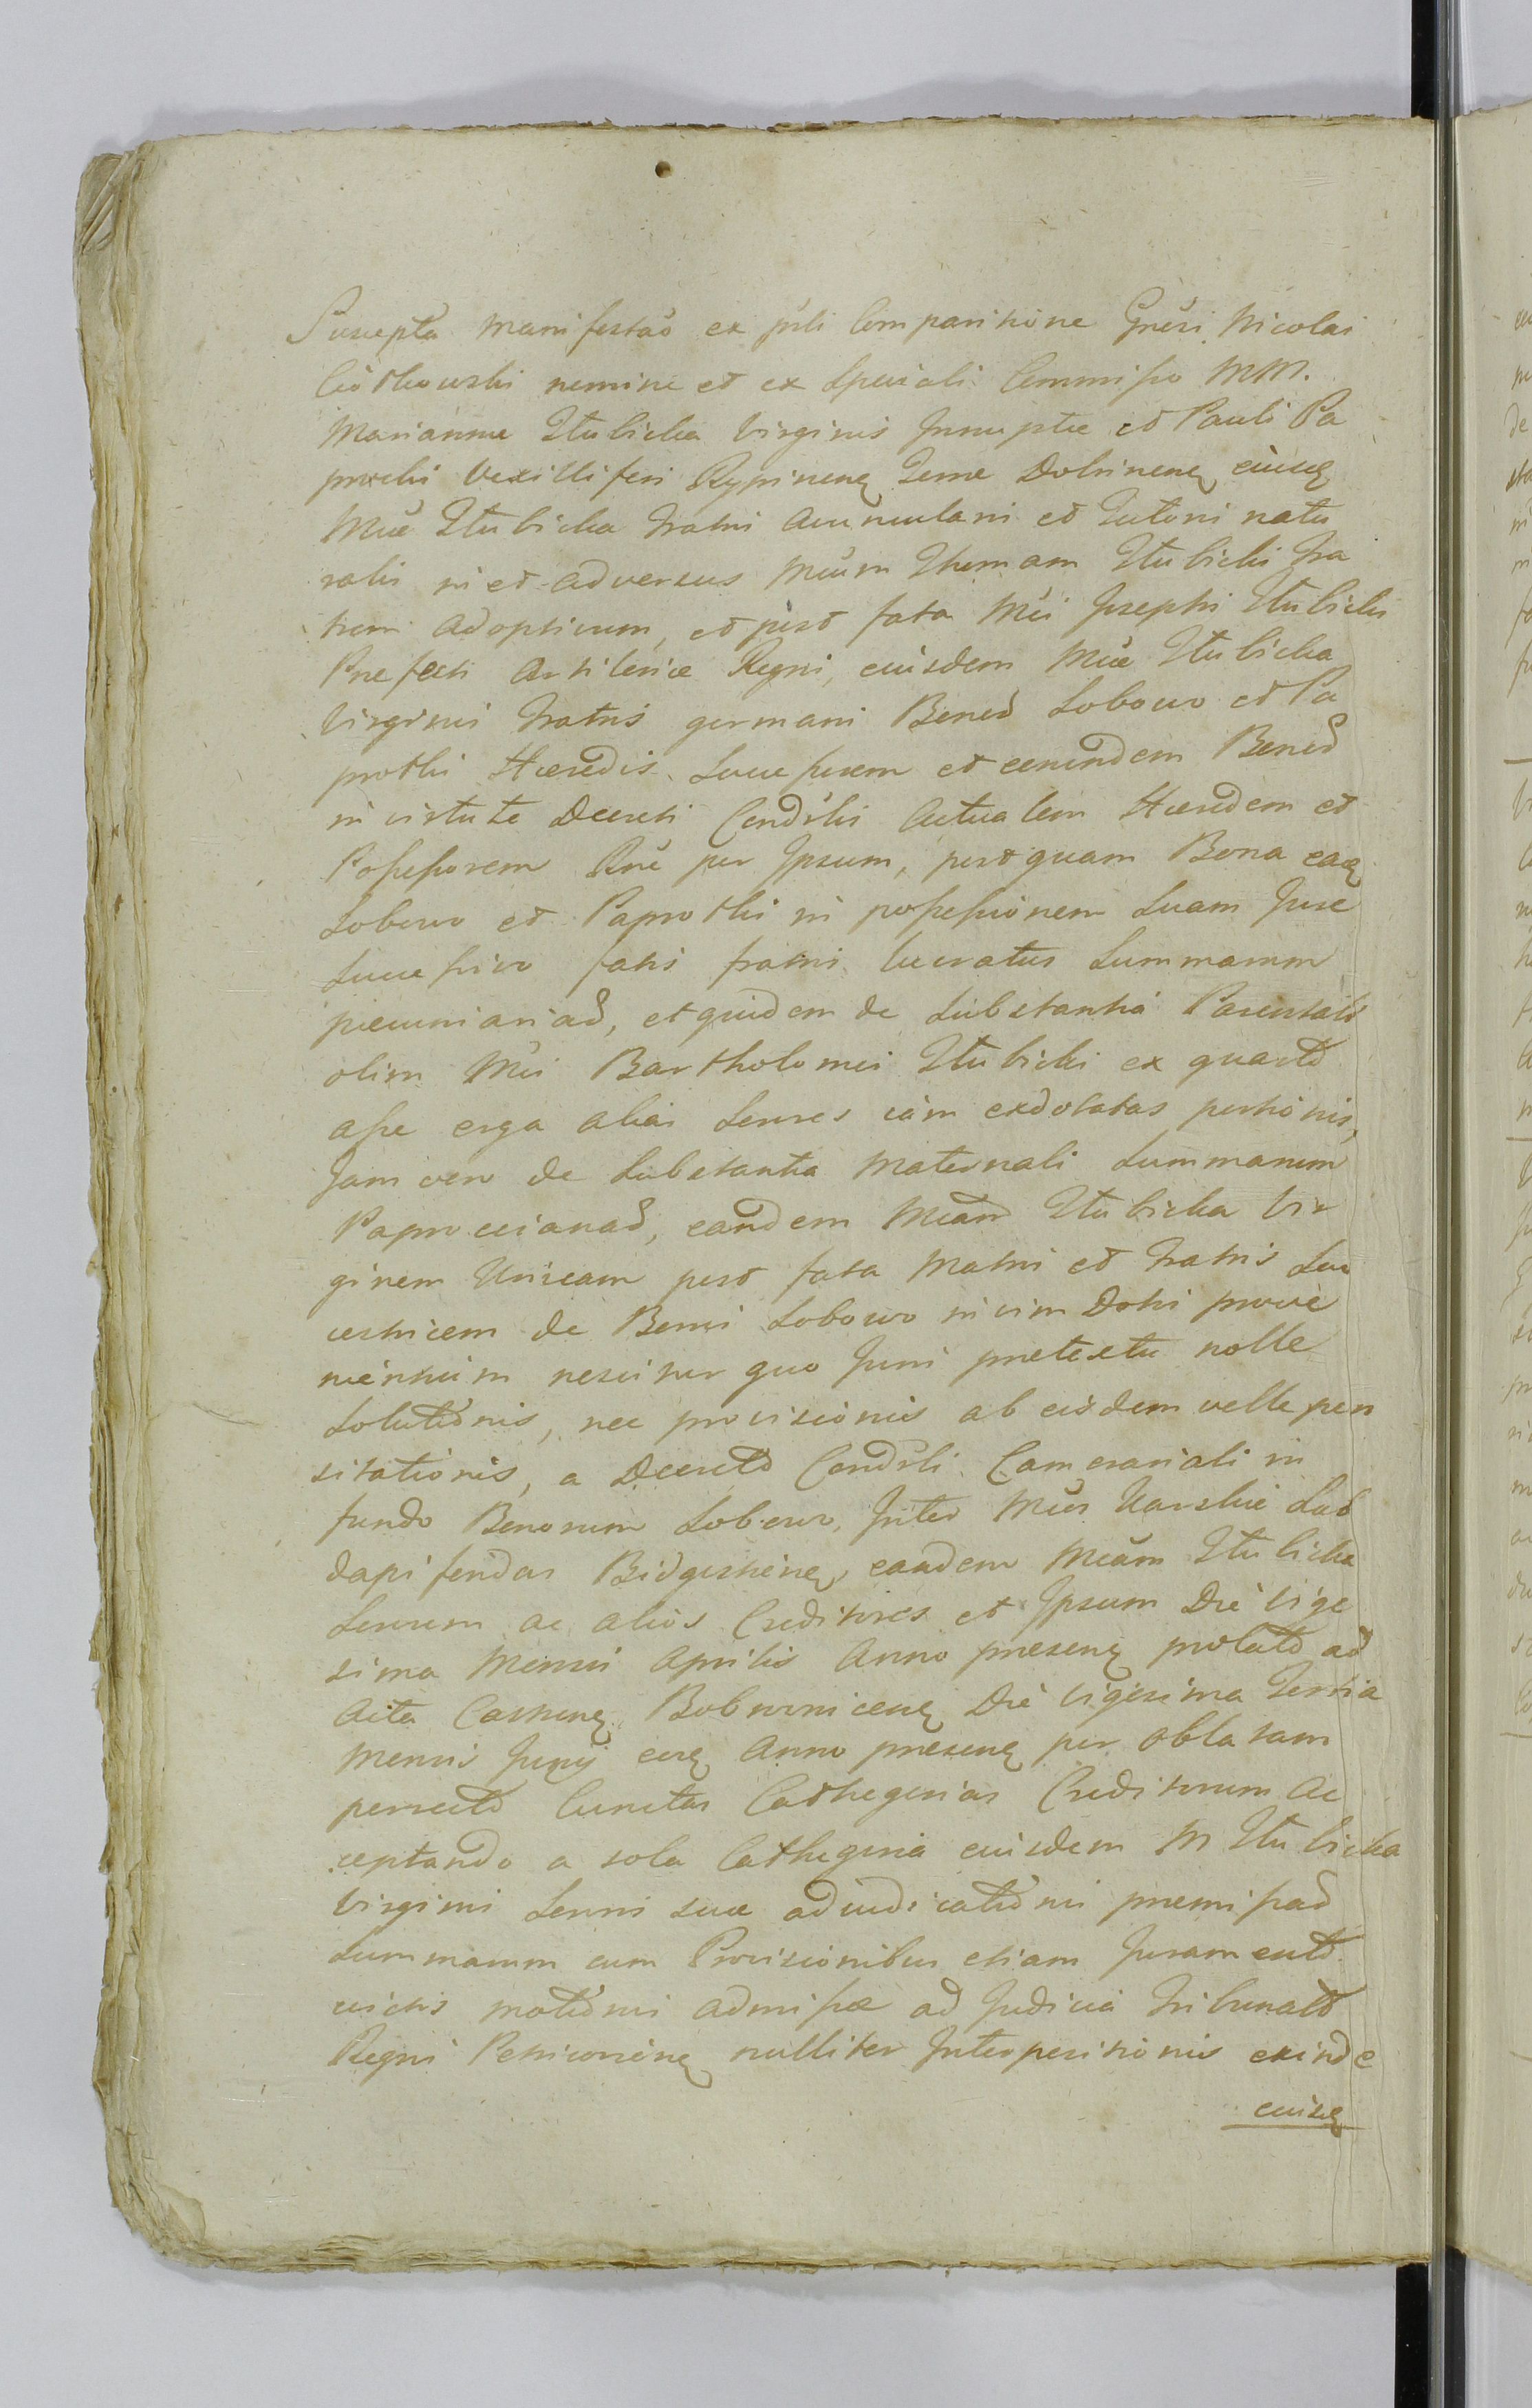 Suscepta manifestao ex psnli Comparitione Gnsi Nicolai
Ciothowski nomine et ex speciali Commisso MM.
Mariannæ Itubicka Virginis Innuptæ et Pauli Pa
procki Vexilliferi Rypinenq Terræ Dobrinenq eiusq
Mcæ Itubicka fratris Avunculani et Tutoris natu
ralis in et adversus Mcum Thomam Itubicki fra
trem adoptivum, et post fata Mci Josephi Itubicki
Præfecti Artileriæ Regni, eiusdem Mcæ Itubicka
Virginis fratris germani Bonod Lobowo et Pa
protki Hæredis Successorem et eorundem Bonod
in virtute Decreti Condsli Actualem Hæredem et
Possessorem Rne per Ipsum, postquam Bona eaq
Lobowo et Paprotki in possessionem suam Jure
Successivo fatis fratris lucratus Summarum
pecuniariad, et quidem de Substantia Parentald
olim Mci Bartholomei Itubicki ex quarta
asse erga alias Sorores iam exdotatas portionis,
Jam vero de Substantia Maternali Summarum
Paproccianad, eandem Mcam Itubicka Vir
ginem Unicam post fata Matris et fratris Suc
cestricem de Bonis Lobowo in vim Dotis prove
nientium nescitur quo Juris pretextu nolle
Solutionis, nec provisionis ab eisdem velle pen
sitationis, a Decreto Condsli Camerariali in
fundo Bonorum Lobowo, Inter Mcos Karskie Sub
dapiferidas Bidgostienq, eandem Mcam Itubicka
Sororem ac alios Creditores et Ipsum Die Vige
sima Mensis Aprilis Anno presenq prolato ad
Acta Castrenq Bobrownicenq Die Vigesima Tertia
Mensis Junij eoq Anno presenq per oblatam
porrecto Cunctas Cathegorias Creditorum Ac
ceptando a sola Cathegoria eiusdem M Itubicka
Virginis Sororis suæ adiudicationis premissad
Summarum cum Provisionibus etiam Juramento
victis motionis admissæ ad Judicia Tribunald
Regni Petricovienq nulliter Interpositionis exinde
eiusq